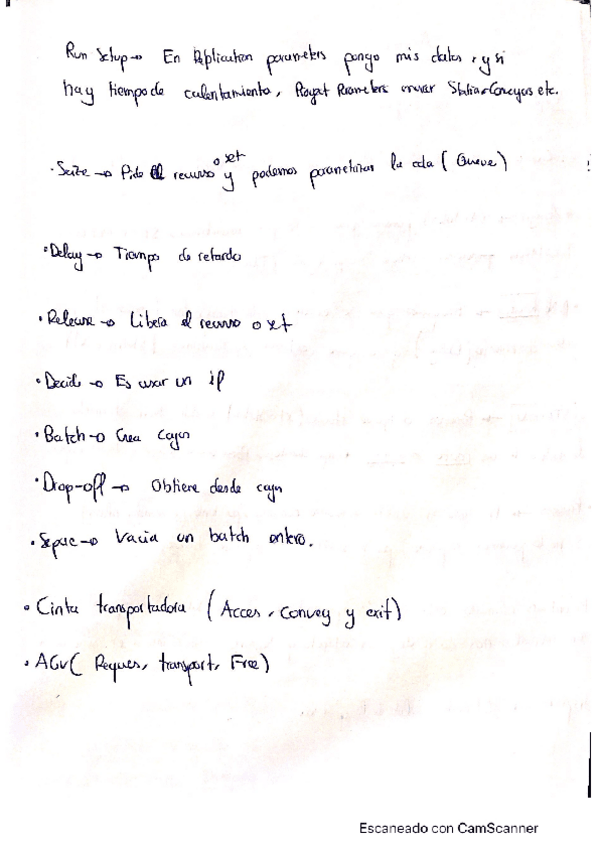 Run Setup→ En Replication parameters pongo mis datos, y si
hay tiempo de calentamiento, Proyect Parameters marcar Station Conveyors etc.
• Seize → Pido el recurso o set y podemos parametrizar la cola (Queue)
• Delay → Tiempo de retardo
• Release → Libera el recurso o set
• Decide → Es usar un if
• Batch → Crea cajas
• Drop-off → Obtiene desde caja
• Separate → Vacia un batch entero.
• Cinta transportadora (Acces, Convey y exit)
• AGV( Reques, transport, Free)
Escaneado con CamScanner